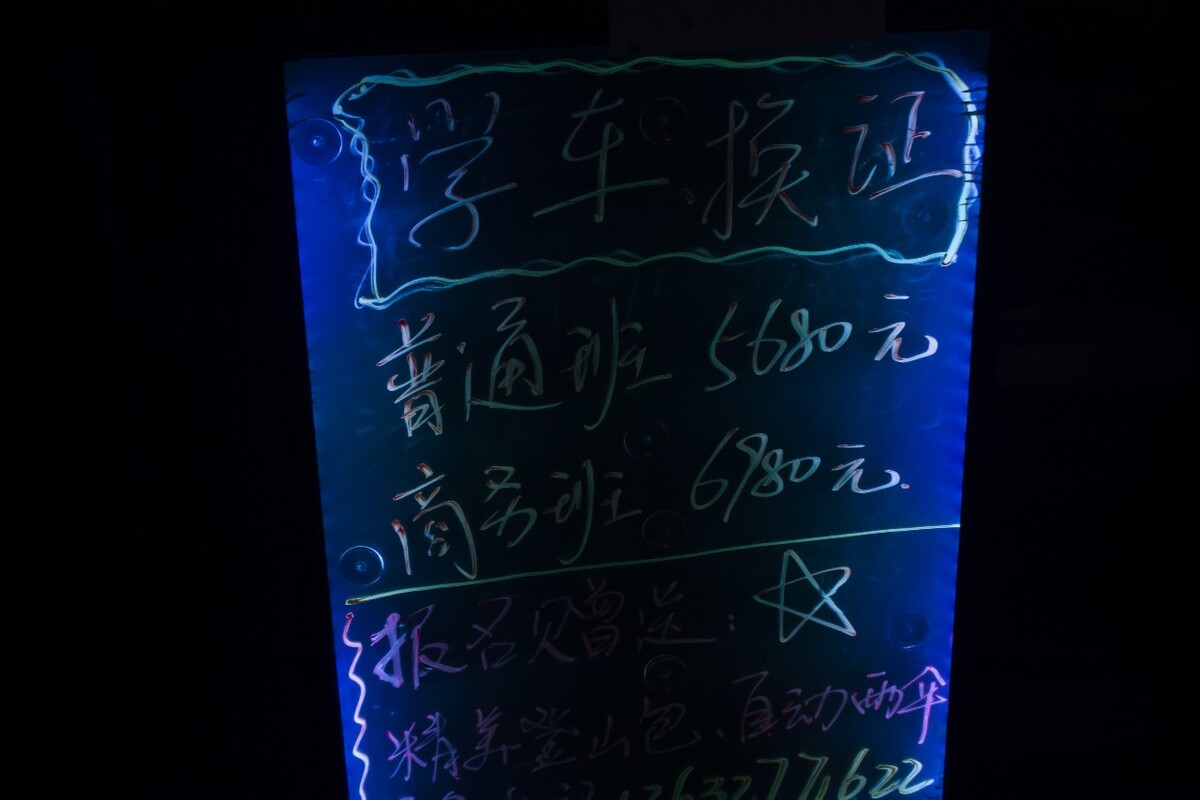 学车、换证
普通班 5680元
商务班 6980元.
报名贝赠送：
精美登山包、自动雨伞
13632771622